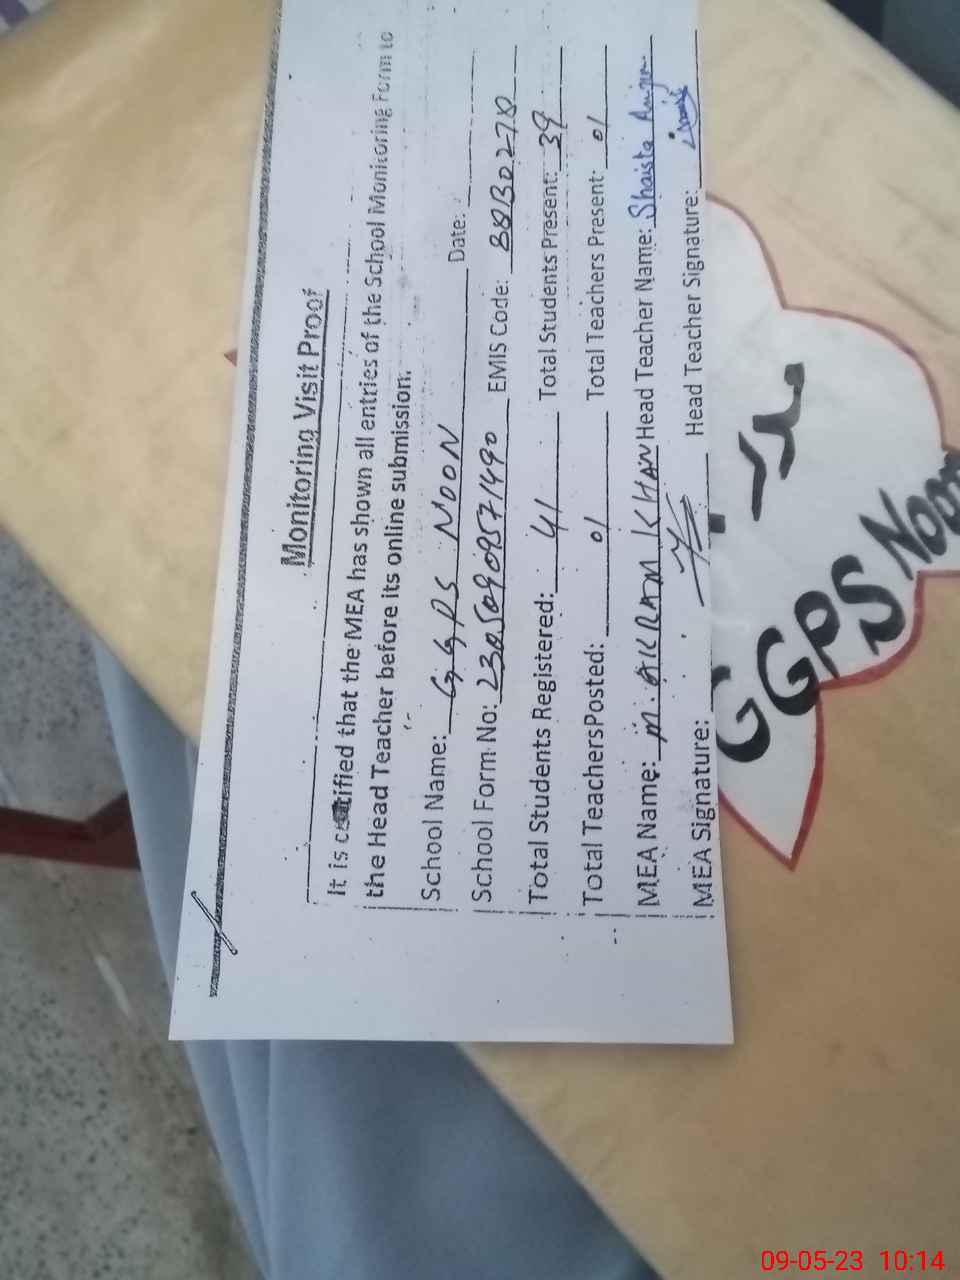 Monitoring Visit Proof
It is certified that the MEA has shown all entries of the School Monitoring Form to
the Head Teacher before its online submission.
School Name: GGPS NOON Date:
School Form No: EMIS Code:
Total Students Registered: 41 Total Students Present: 39
Total Teachers Posted: 01 Total Teachers Present: 01
MEA Name: M. AKRAM KHAN Head Teacher Name: Shaista Anjum
MEA Signature: Head Teacher Signature:
GGPS Noon
09-05-23 10:14